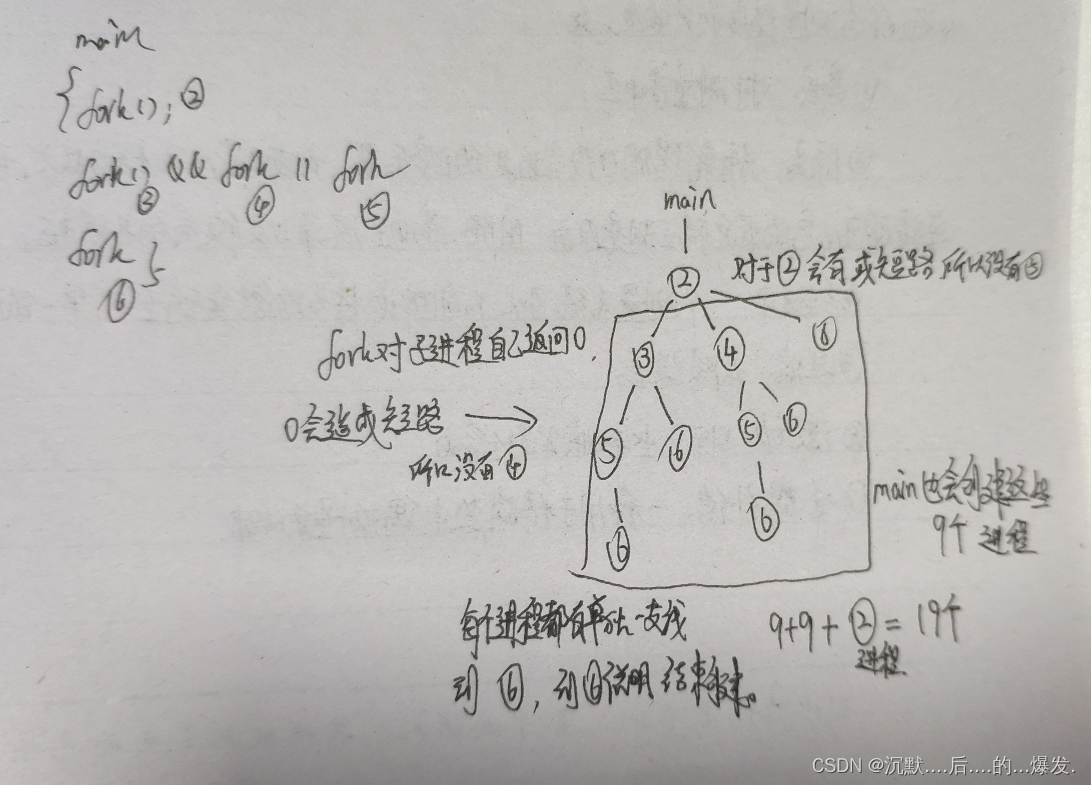 main
{fork(); ②
fork() && fork || fork
③ ④ ⑤
fork }
⑥
main
② 对于②会有或短路所以没有⑤
fork对子进程自己返回0,
③ ④ ⑥
0会造成短路
所以没有④
⑤ ⑥ ⑤ ⑥
⑥ ⑥
main也会创建这些
9个进程
每个进程都有单独一支线
到⑥,到⑥说明结束
9+9+②=19个
进程
CSDN @沉默....后....的...爆发.